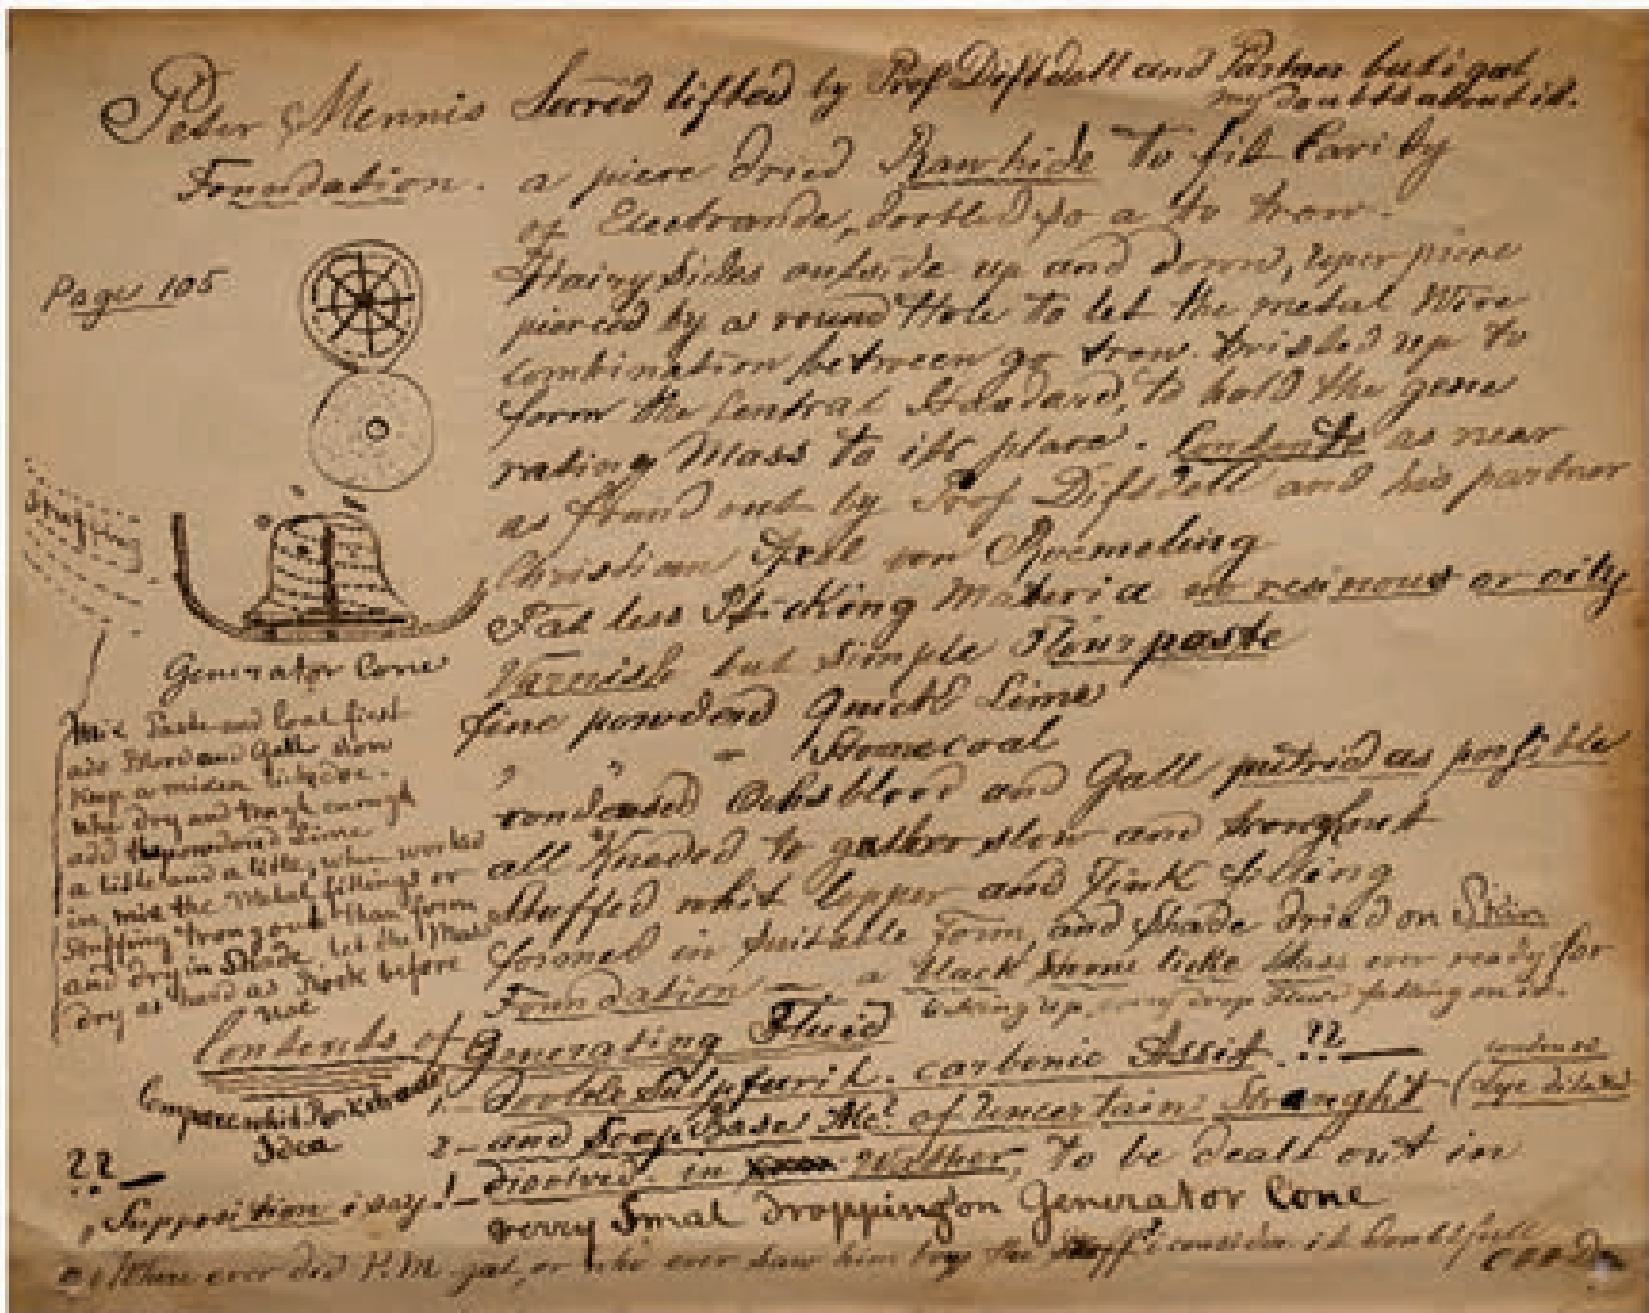 Peter Mennis Secred lifted by Prof and Partner but i got
my doubts about it.
Foundation. a piece dried Rawhide to fit Cavity
of Electrande, dobbled, so a to trow.
Page 105
Hairy Sides outside up and down, uper piece
pierced by a round Hole to let the metal Wire
combination between go trow. twisled up to
form the Central Standard, to hold the gene
rating Mass to its place. Contents as near
as found out by Prof and his partner
Christian Axel von Roemeling
Stuffing
Fat less Sticking Materia no resinous or oily
Varnish but simple Flour paste
fine powdered Quick Lime
" " = Stonecoal
condensed Ochsblood and Gall putrid as possible
all Kneaded to gather slow and
stuffed whit Copper and Zink filling
formed in suitable Form, and Shade dried on Skin
Foundation — a black Stone licke Mass ever ready for
taking up, every drop Fluid falling on it.
Generator Cone
Mix Paste and Coal first
add Blood and Galle slow
Keep a mixen
when dry and tough enough
add the powdered Lime
a litle and a litle, when worked
in, mix the Metal fillings or
Stuffing trongout than form
and dry in Shade. let the Mass
dry as hard as Rock before
use
Contents of Generating Fluid
1 – Dobble Sulpfurik. carbonic Assit. ??—
condensed
(Lye diluted
Compare whit
Idea
2 – and Soap Base Mc? of uncertain Straught
disolved. in Wather, to be dealt out in
verry Smal dropping on Generator Cone
??—
Supposition i say!
Where ever did P.M. get, or who ever saw him buy the Stuff? i consider it doubtfull